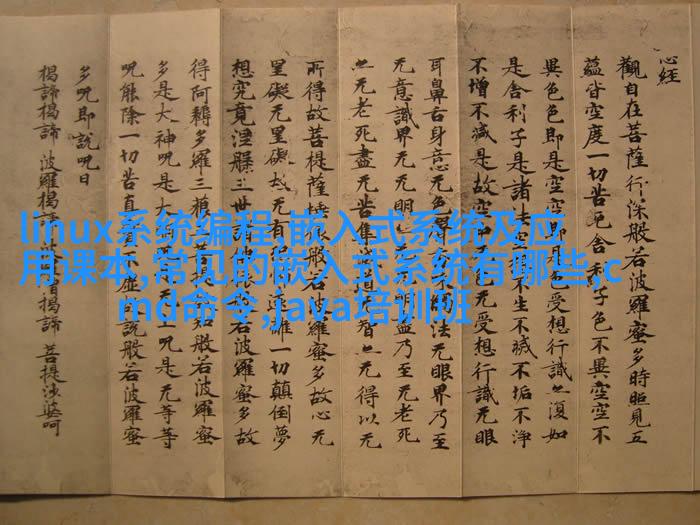 心经
觀自在菩薩行深般若波羅蜜多時照見五
蘊皆空度一切苦厄舍利子色不異空空不
異色色即是空空即是色受想行識亦復如
是舍利子是諸法空不生不滅不垢不淨
不增不減是故空中无色无受想行識无眼
耳鼻舌身意无色聲法无眼界乃至
无意識界无无明盡乃至无老死
亦无老死盡无苦集滅道智亦无得以无
所得故菩提薩埵般若波羅蜜多故心无
罣礙无罣礙故无有遠離一切顛倒夢
想究竟涅槃三世諸若波羅蜜多故
得阿耨多羅三藐菩提知般若波羅蜜
多是大神咒是大上咒是无等等
咒能除一切苦真不虛說般若波羅蜜
多咒即說咒曰
揭諦揭諦 波羅揭諦 揭諦 菩提婆呵
linux系统编程,嵌入式系统及应
用课本,常见的嵌入式系统有哪些,c
md命令,java培训班